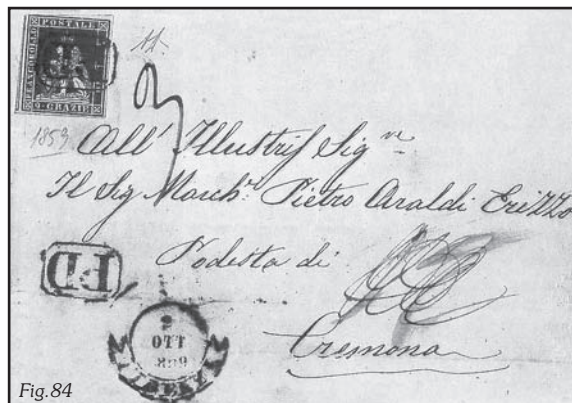 FRANCOBOLLO POSTALE
9 CRAZIE
1859
All' Illustris Sig.re
Il Sig March.e Pietro Araldi Erizzo
Podesta di
Cremona
PD
OTT
FIRENZE
Fig.84